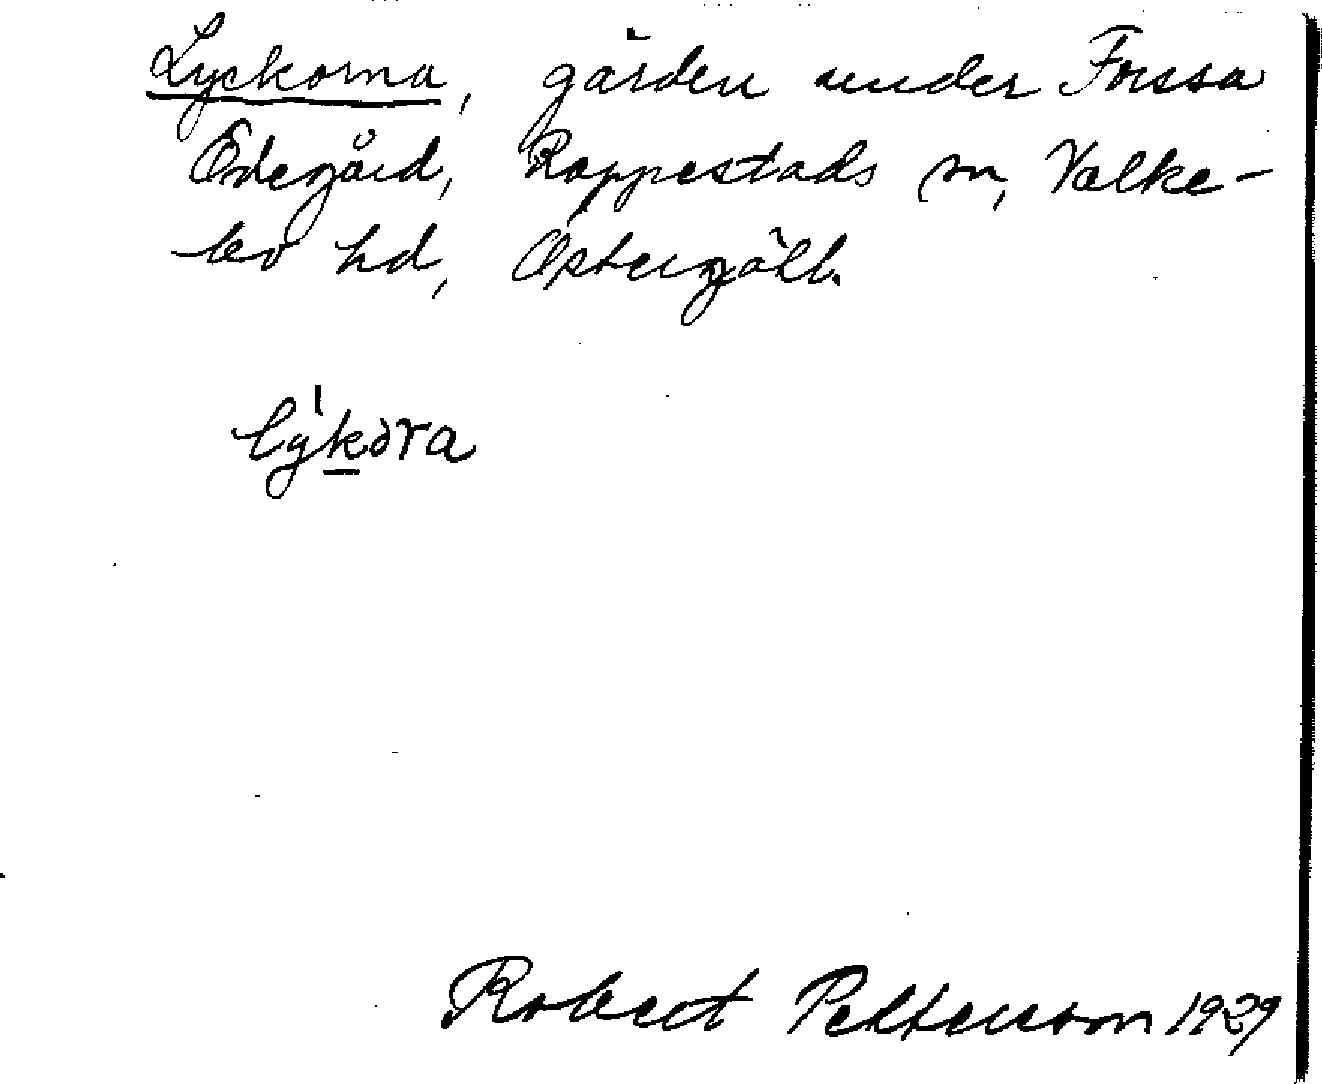 Lyckorna, gården under Forssa
Edegård, Rappestads sn, Valke-
bo hd, Östergötl.
lýkøra
Robert Petterson 1929